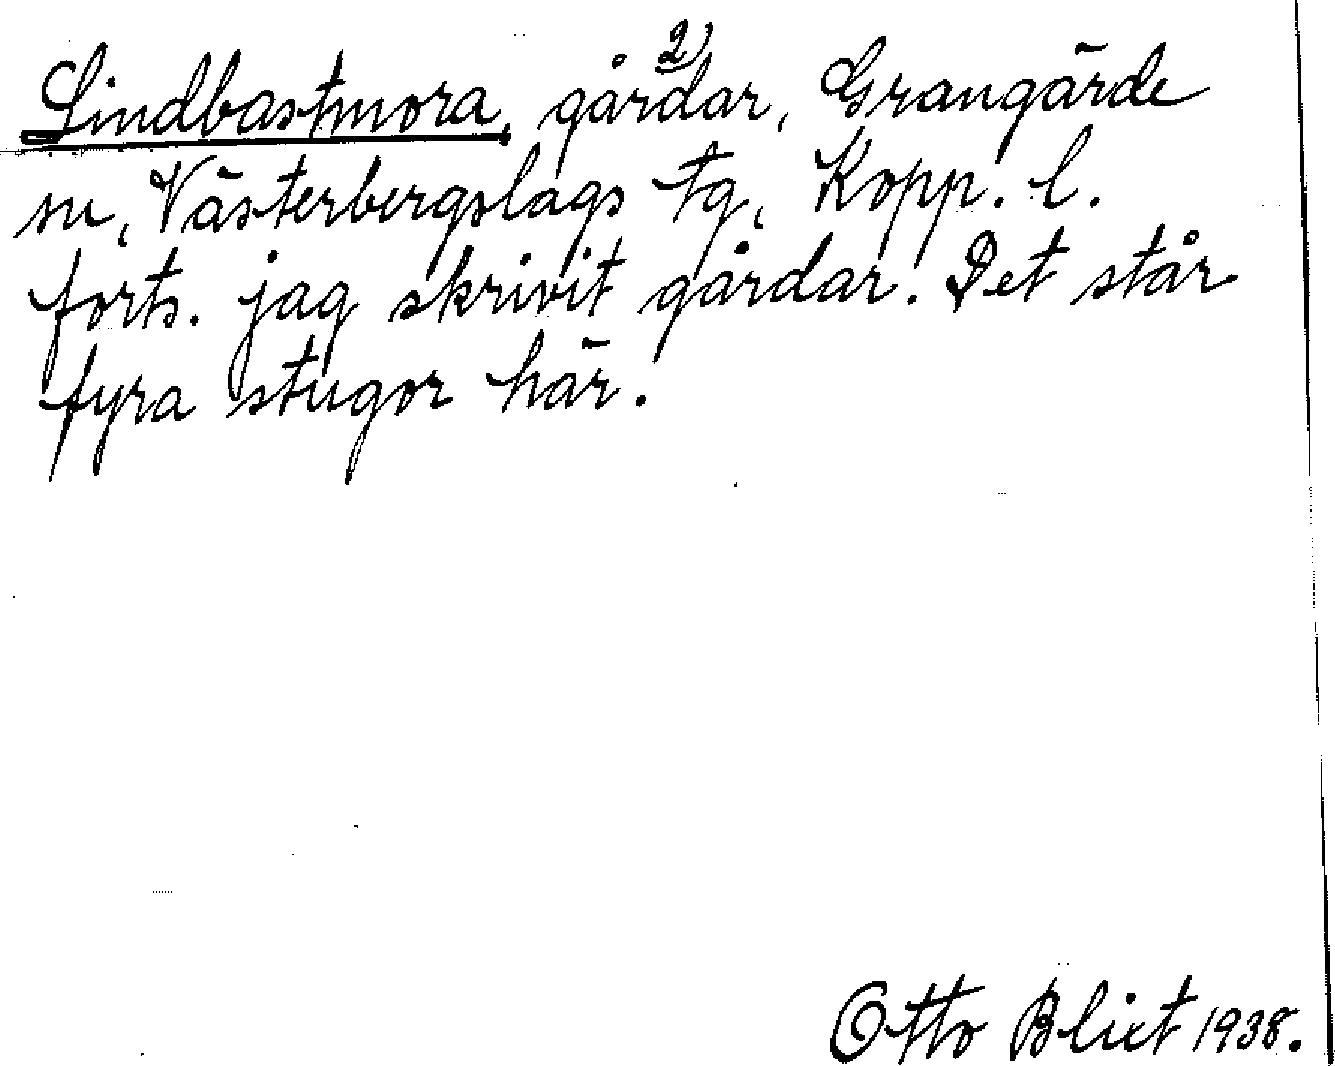 2)
Lindbastmora, gårdar, Grangärde
sn, Västerbergslags tg, Kopp. l.
forts. jag skrivit gårdar. Det står
fyra stugor här.
Otto Blixt 1938.